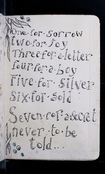 one·for·sorrow
two·for·joy
Three·for·a·letter
four·for·a·boy
five·for·silver
six·for·gold
Seven·for·a·secret
never·to·be
told...